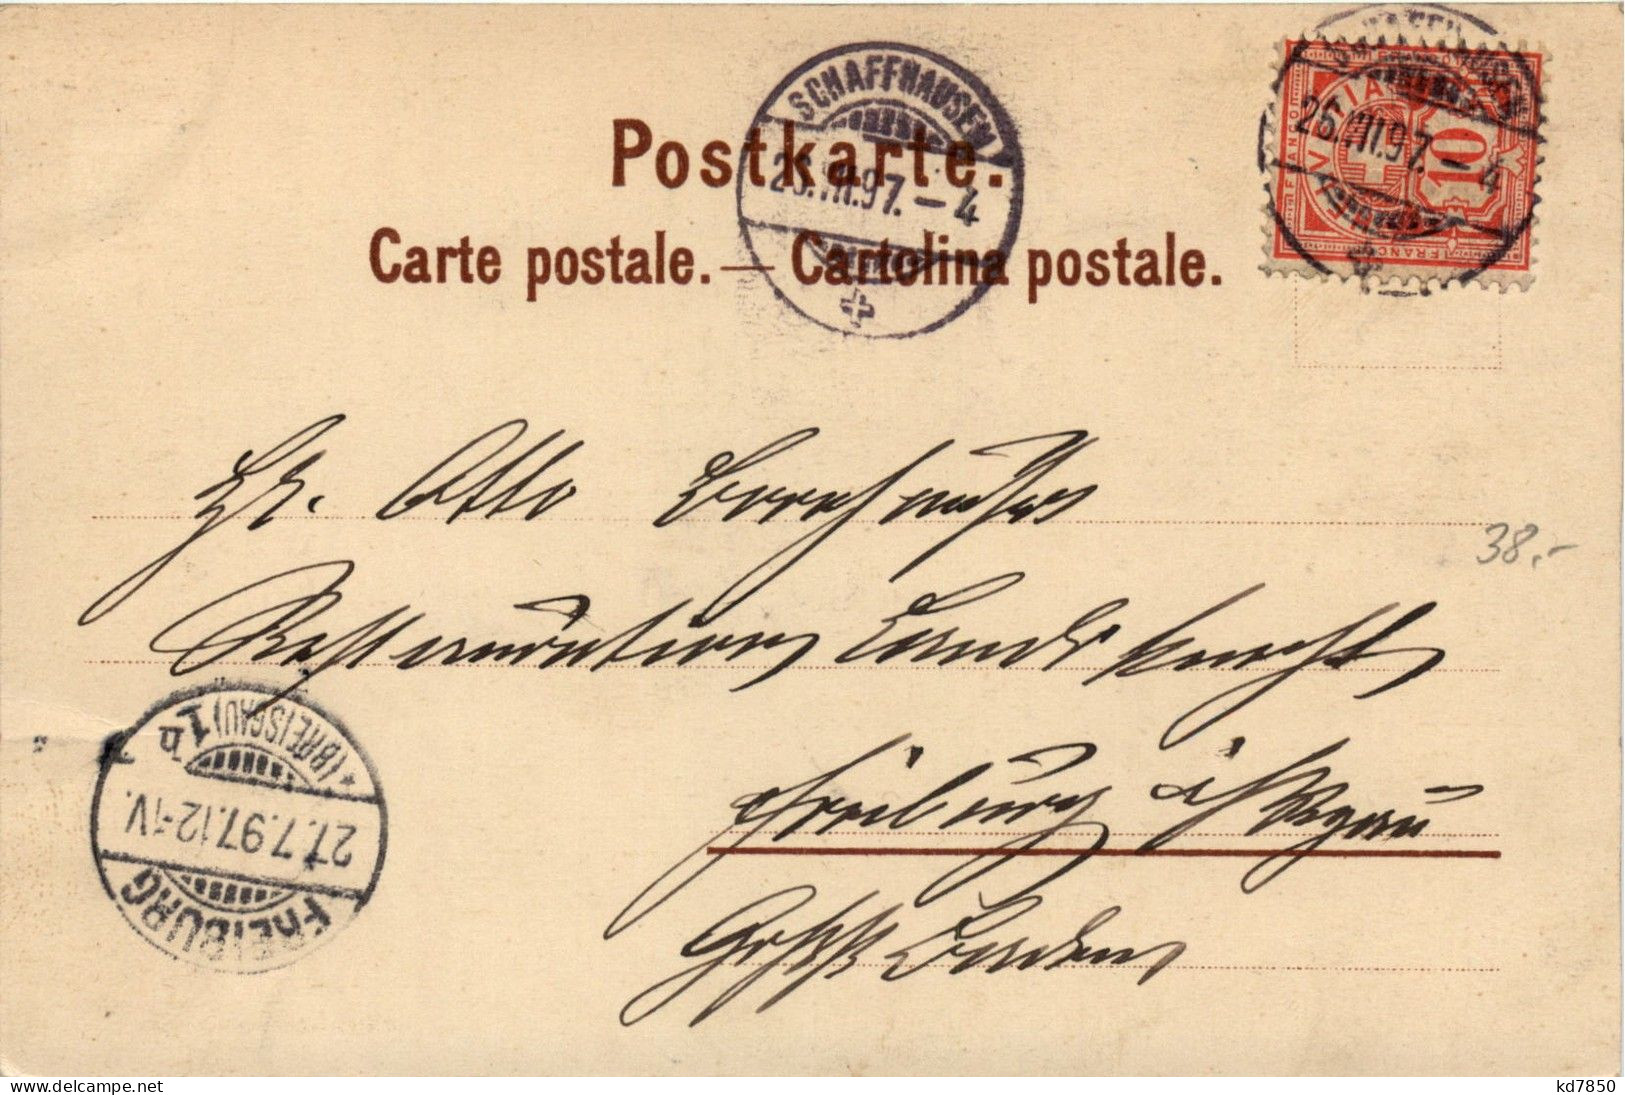 Postkarte.
Carte postale. — Cartolina postale.
SCHAFFHAUSEN
26.VII.97.–4
SCHAFFHAUSEN
26.VII.97.–4
HELVETIA
FRANCO
10
FRANCO
Hr. Otto
38.-
Restauration Landsknecht
Freiburg i/Brsgau
Baden
FREIBURG
27.7.97.12-1V.
(BREISGAU) 1h
www.delcampe.net
kd7850